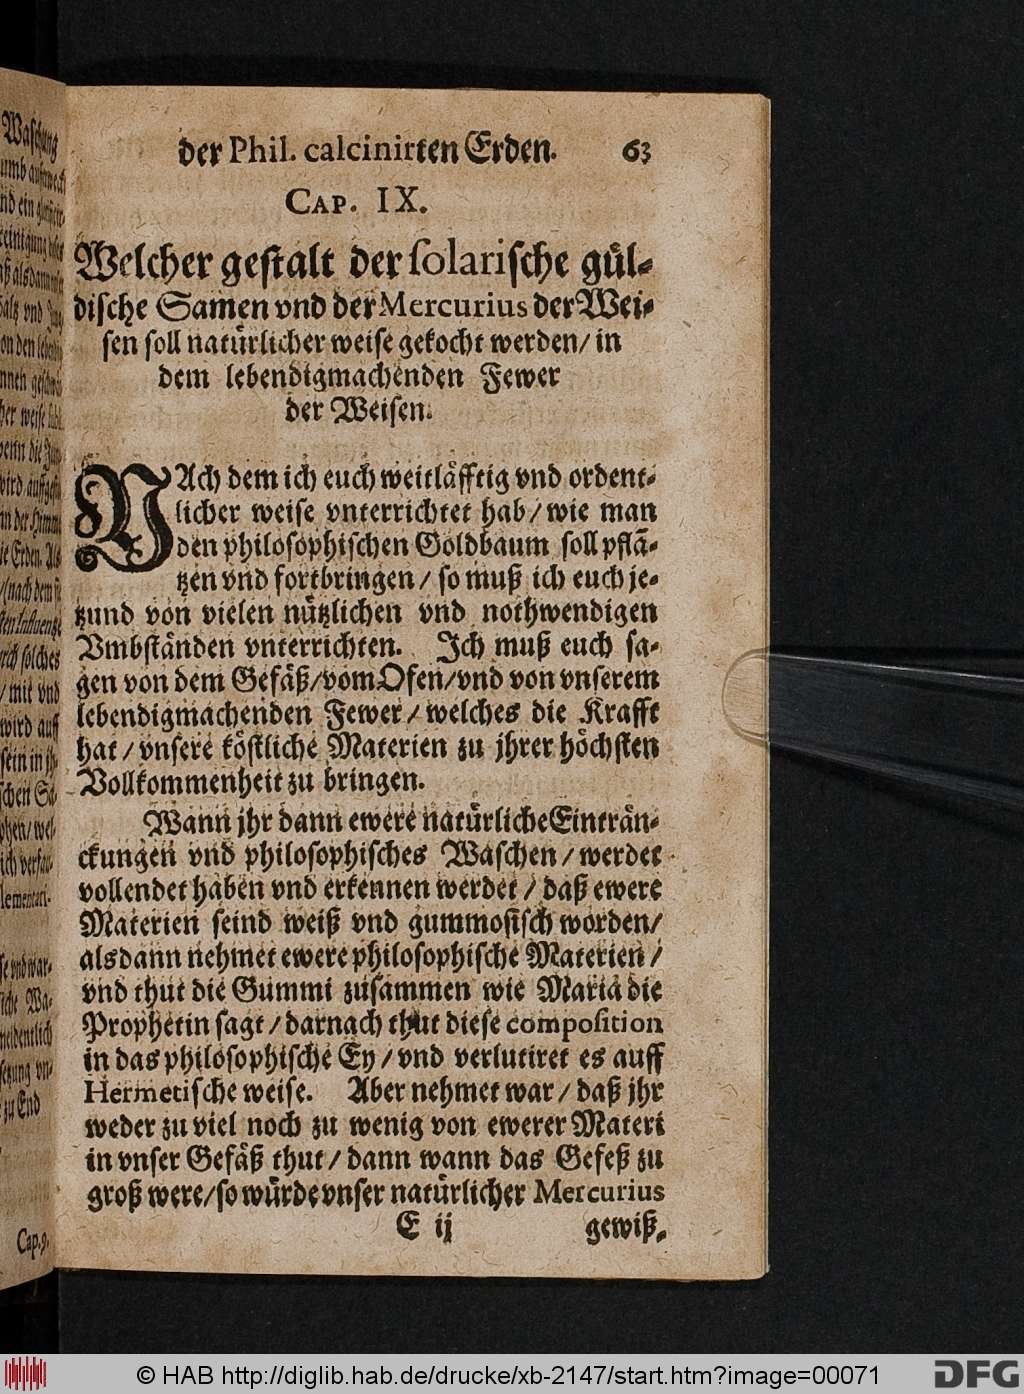 der Phil. calcinirten Erden. 63
CAP. IX.
Welcher gestalt der solarische gül-
dische Samen vnd der Mercurius der Wei-
sen soll natürlicher weise gekocht werden/ in
dem lebendigmachenden Fewer
der Weisen.
NAch dem ich euch weitläfftig vnd ordent-
licher weise vnterrichtet hab/ wie man
den philosophischen Goldbaum soll pflã-
tzen vnd fortbringen/ so muß ich euch je-
tzund von vielen nützlichen vnd nothwendigen
Vmbständen vnterrichten. Ich muß euch sa-
gen von dem Gefäß/ vom Ofen/ vnd von vnserem
lebendigmachenden Fewer/ welches die Krafft
hat/ vnsere köstliche Materien zu jhrer höchsten
Vollkommenheit zu bringen.
Wann jhr dann ewere natürliche Einträn-
ckungen vnd philosophisches Waschen/ werdet
vollendet haben vnd erkennen werdet/ daß ewere
Materien seind weiß vnd gummosisch worden/
alsdann nehmet ewere philosophische Materien/
vnd thut die Gummi zusammen wie Maria die
Prophetin sagt/ darnach thut diese composition
in das philosophische Ey/ vnd verlutiret es auff
Hermetische weise. Aber nehmet war/ daß jhr
weder zu viel noch zu wenig von ewerer Materi
in vnser Gefäß thut/ dann wann das Gefeß zu
groß were/ so würde vnser natürlicher Mercurius
E ij gewiß-
Cap. 9.
© HAB http://diglib.hab.de/drucke/xb-2147/start.htm?image=00071
DFG